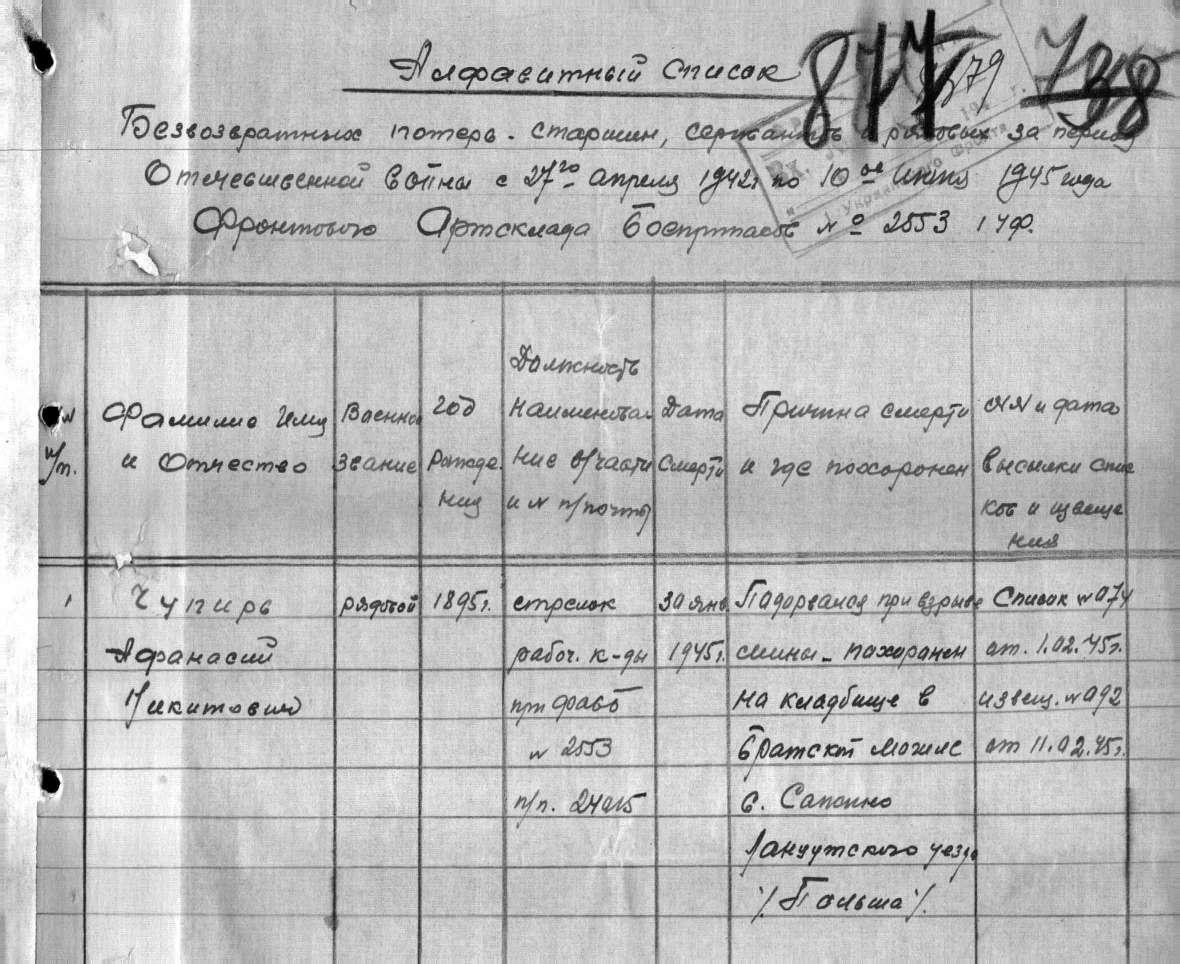 Алфавитный список
877
738
Безвозвратных потерь старшин, сержантов и рядовых за период
Отечественной войны с 27го апреля 1942г по 10ое июня 1945 года
Фронтового Артсклада Боеприпасов № 2553 1 УФ.
Вх.
1 Украинского Фронта
№ п/п.
Фамилию Имя и Отчество
Военное звание
Год Рождения
Должность Наименование в/части и № п/почты
Дата Смерти
Причина смерти и где похоронен
№№ и дата высылки списков и извещения
1
Чупирь
Афанасий
Никитович
рядовой
1895г.
стрелок
рабоч. к-ды
при ФАСБ
№ 2553
п/п. 24015
30 янв
1945г.
Падорвался при взрыве
мины - похоронен
на кладбище в
братской могиле
с.
Ланцутского уезда
/Польша/.
Список №074
от. 1.02.45г.
извещ. №092
от 11.02.45г.